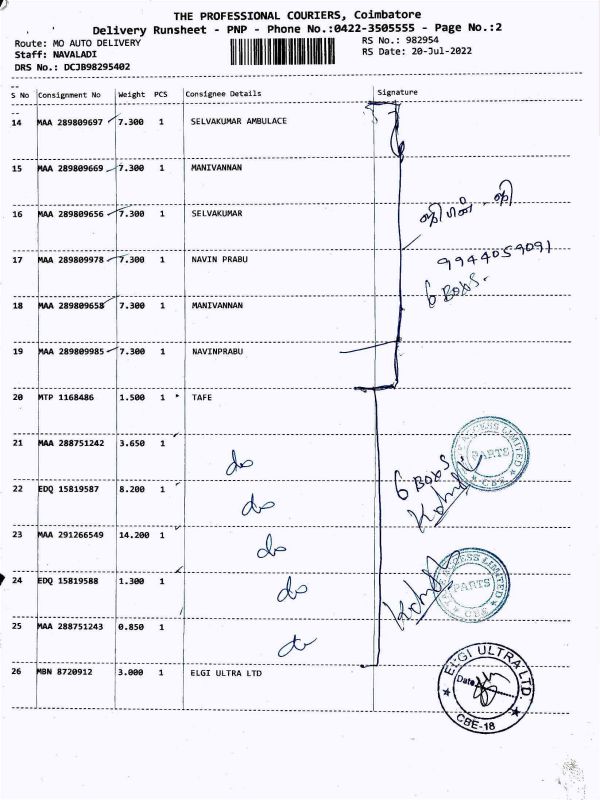 THE PROFESSIONAL COURIERS, Coimbatore
Delivery Runsheet - PNP - Phone No.:0422-3505555 - Page No.:2
Route: MO AUTO DELIVERY
RS No.: 982954
Staff: NAVALADI
RS Date: 20-Jul-2022
DRS No.: DCJB98295402
S No Consignment No Weight PCS Consignee Details Signature
14 MAA 289809697 7.300 1 SELVAKUMAR AMBULACE
15 MAA 289809669 7.300 1 MANIVANNAN
16 MAA 289809656 7.300 1 SELVAKUMAR
17 MAA 289809978 7.300 1 NAVIN PRABU
9944059091
6 Boxs.
18 MAA 289809658 7.300 1 MANIVANNAN
19 MAA 289809985 7.300 1 NAVINPRABU
20 MTP 1168486 1.500 1 TAFE
21 MAA 288751242 3.650 1 do
6 Boxs
ACCESS LIMITED
PARTS
CBE
22 EDQ 15819587 8.200 1 do
23 MAA 291266549 14.200 1 do
24 EDQ 15819588 1.300 1 do
ACCESS LIMITED
PARTS
CBE
25 MAA 288751243 0.850 1 do
26 MBN 8720912 3.000 1 ELGI ULTRA LTD
ELGI ULTRA LTD.
Date
CBE-18